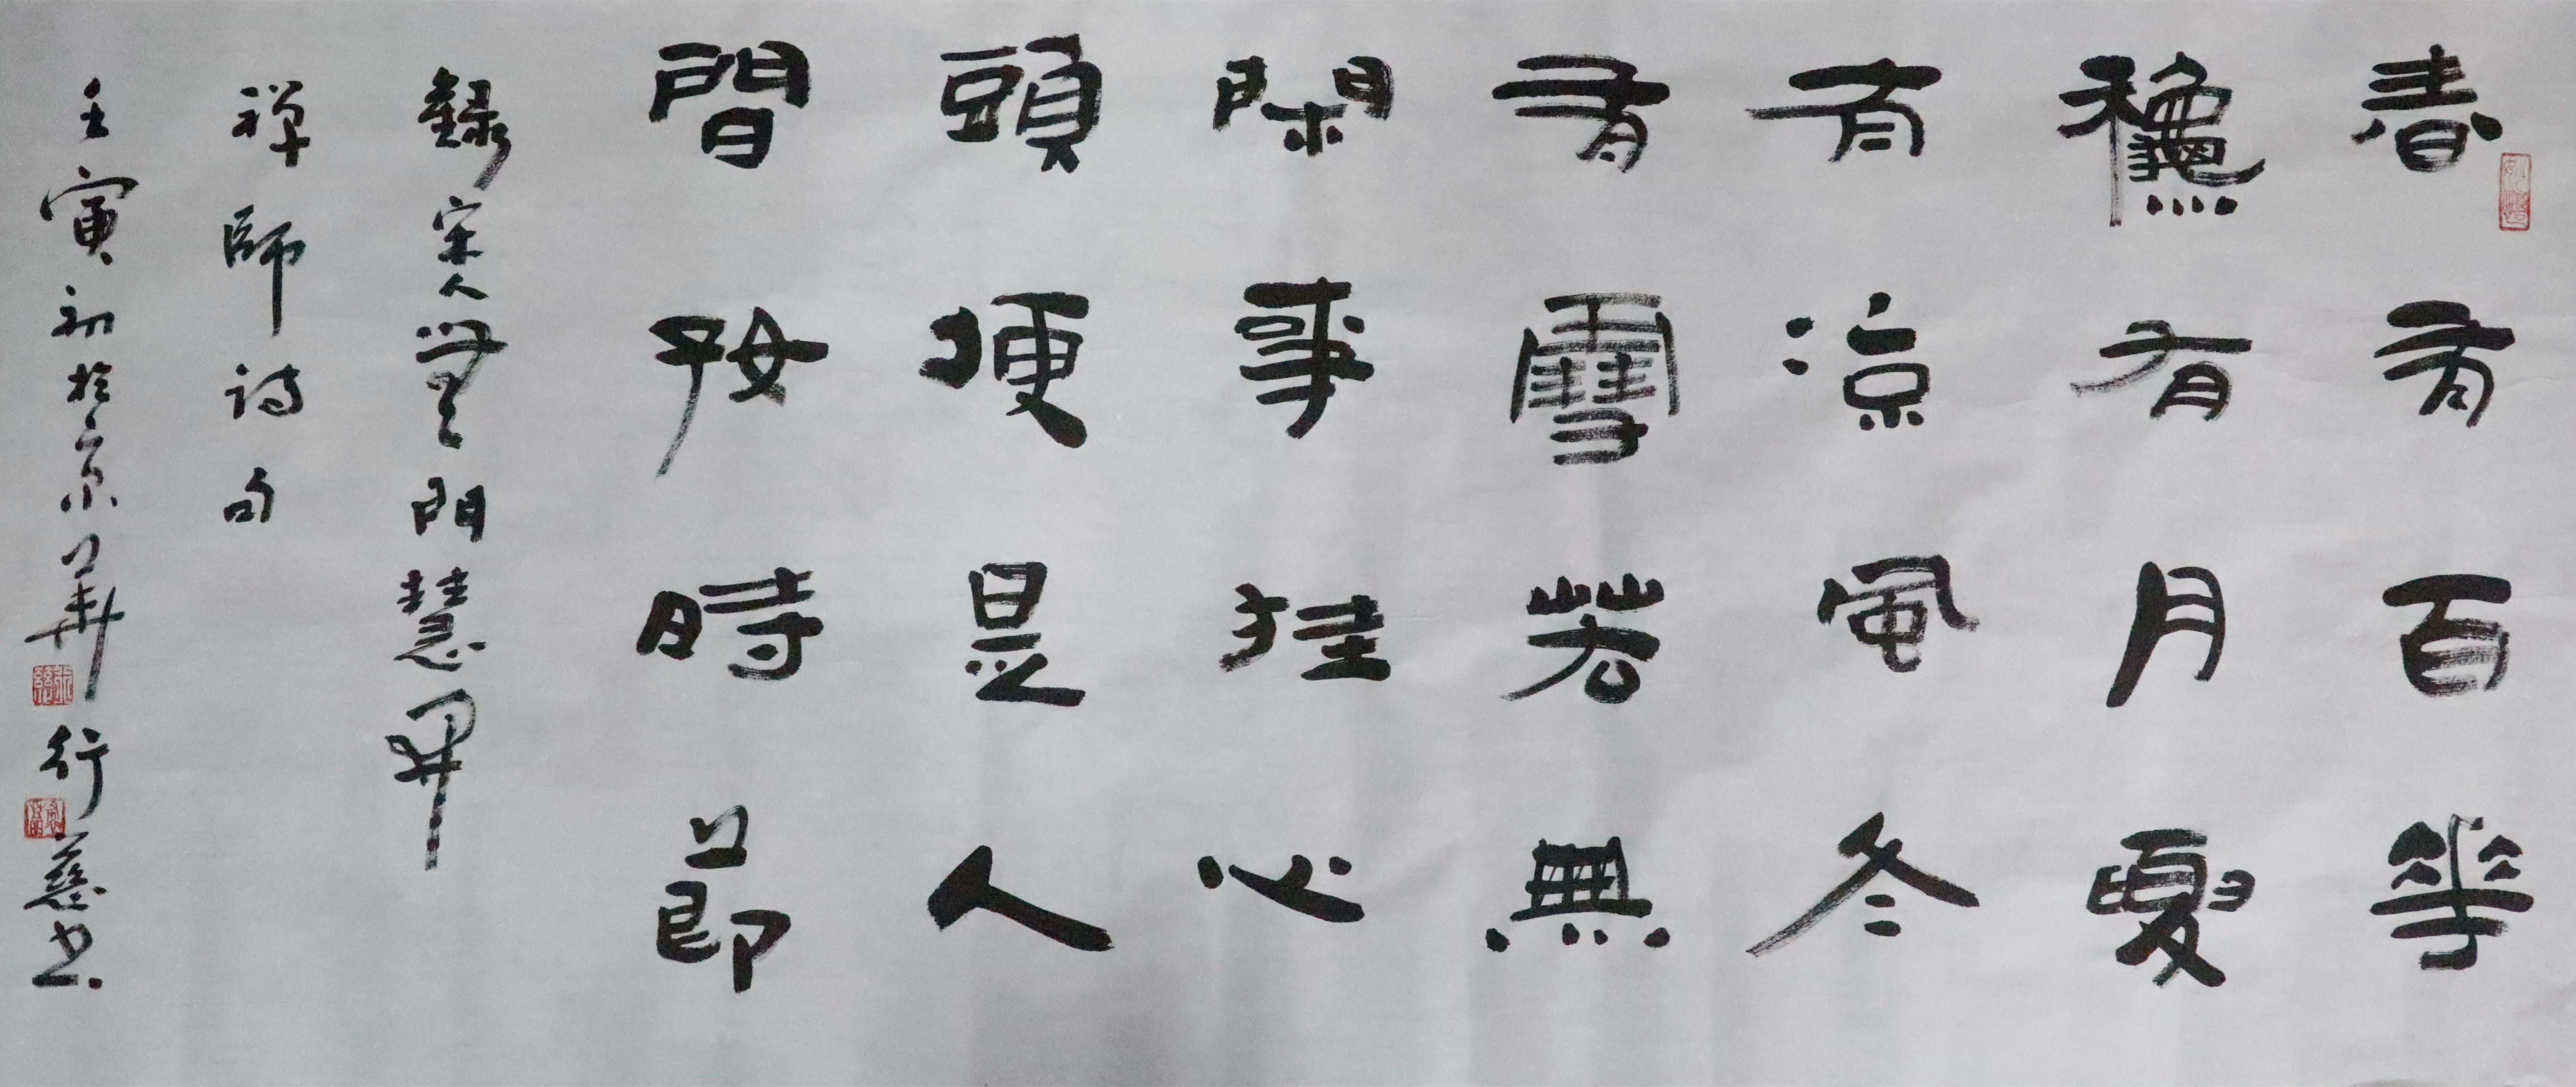 春有百花
龝有月夏
有涼風冬
有雪若無
閑事挂心
頭便是人
間好時節
録宋人無門慧開
禅師詩句
壬寅初於京華行慈书